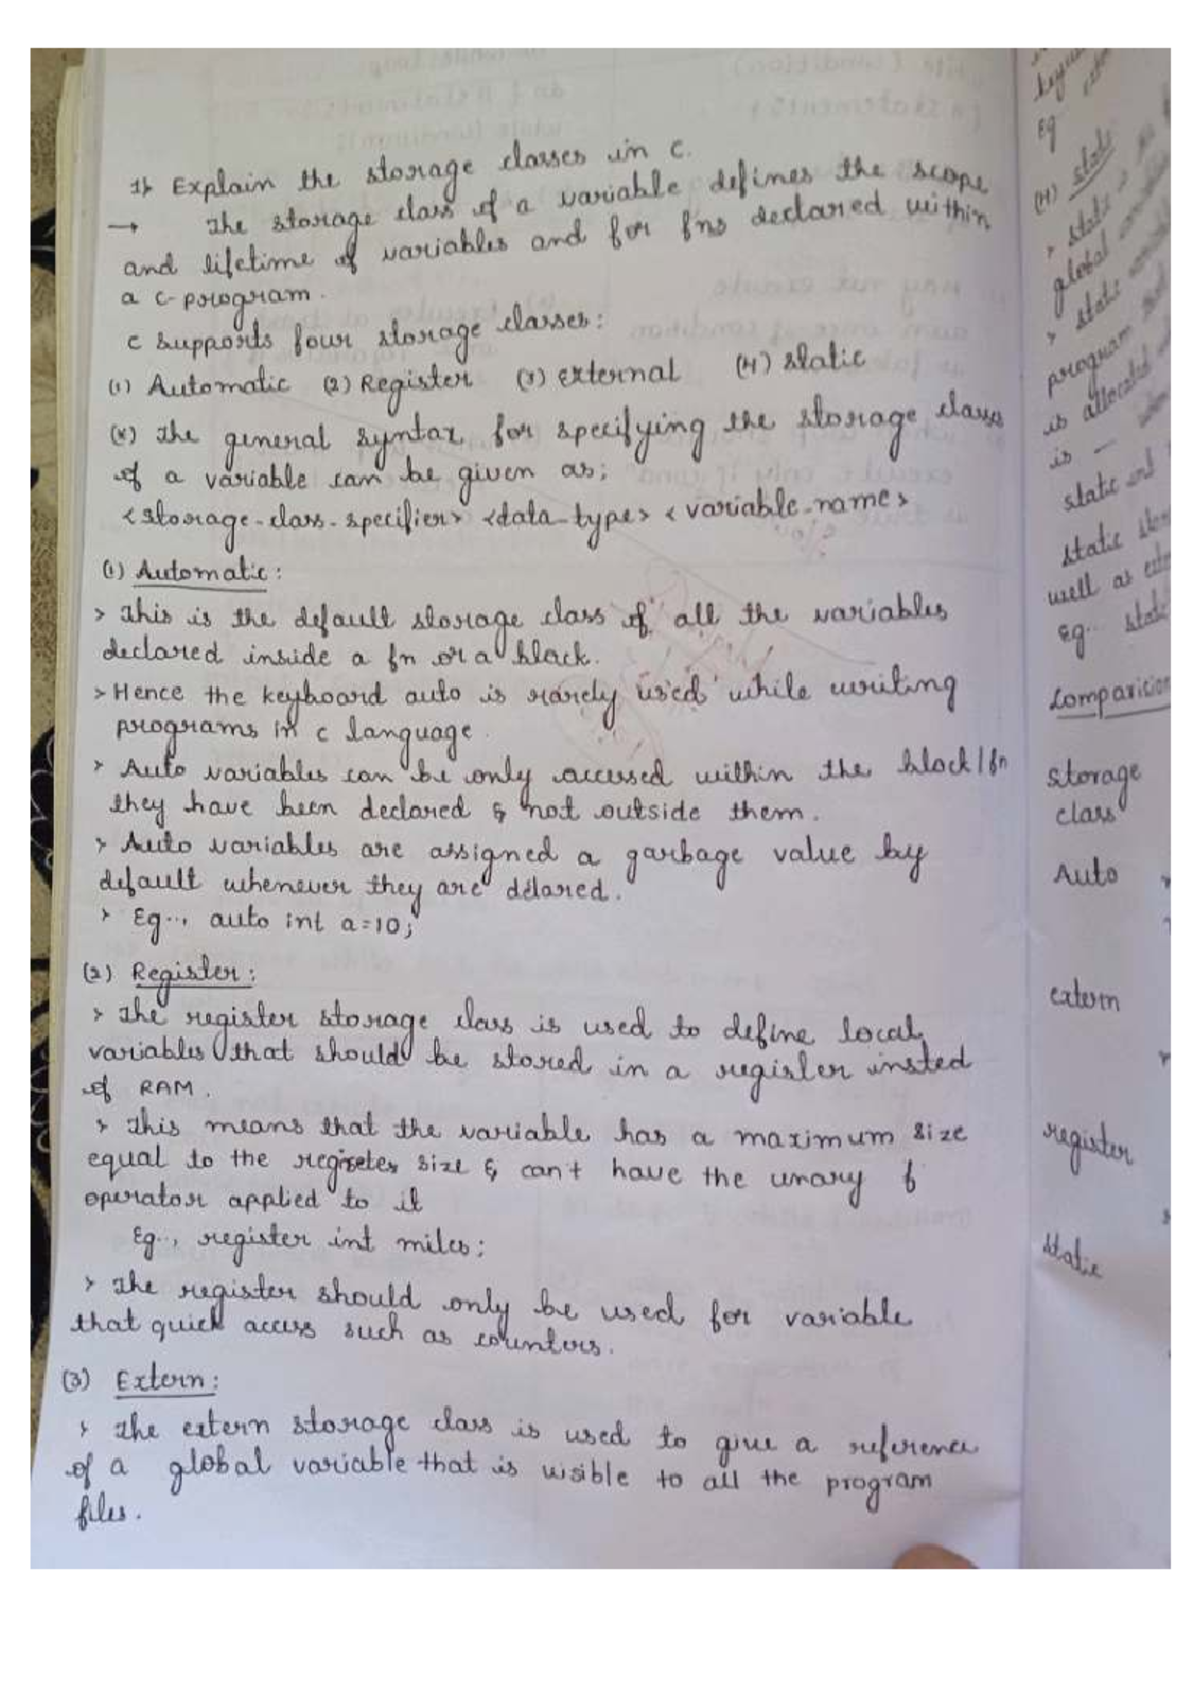 1) Explain the storage classes in c.
→ The storage class of a variable defines the scope
and lifetime of variables and for fns declared within
a c-program.
c supports four storage classes:
(1) Automatic (2) Register (3) external (4) static
(*) The general syntax for specifying the storage class
of a variable can be given as;
<storage-class-specifier> <data-type> <variable-name>
(1) Automatic:
> This is the default storage class of all the variables
declared inside a fn or a block.
> Hence the keyboard auto is rarely used while writing
programs in c language.
> Auto variables can be only accessed within the block/fn
they have been declared & not outside them.
> Auto variables are assigned a garbage value by
default whenever they are delared.
> Eg.., auto int a=10;
(2) Register:
> The register storage class is used to define local
variables that should be stored in a register insted
of RAM.
> This means that the variable has a maximum size
equal to the regiseter size & can't have the unary &
operator applied to it
Eg.., register int miles;
> The register should only be used for variable
that quick access such as counters.
(3) Extern:
> The extern storage class is used to give a reference
of a global variable that is visible to all the program
files.
Eg
(4) static
> static
global
> static
program
is allocated
is
static and
static
well as
Eg.. stati
Comparision
storage
class
Auto
extern
register
static